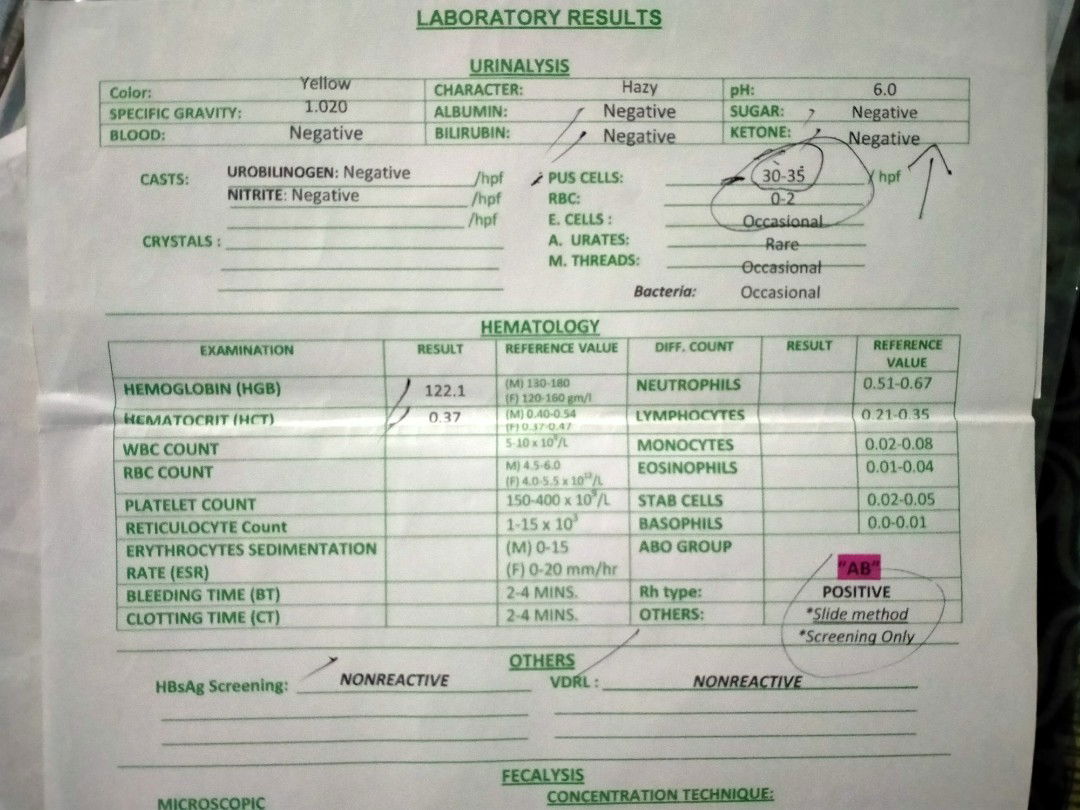 LABORATORY RESULTS
URINALYSIS
Color: Yellow CHARACTER: Hazy pH: 6.0
SPECIFIC GRAVITY: 1.020 ALBUMIN: Negative SUGAR: Negative
BLOOD: Negative BILIRUBIN: Negative KETONE: Negative
CASTS: UROBILINOGEN: Negative /hpf PUS CELLS: 30-35 / hpf
NITRITE: Negative /hpf RBC: 0-2
/hpf E. CELLS : Occasional
CRYSTALS : A. URATES: Rare
M. THREADS: Occasional
Bacteria: Occasional
HEMATOLOGY
EXAMINATION RESULT REFERENCE VALUE DIFF. COUNT RESULT REFERENCE VALUE
HEMOGLOBIN (HGB) 122.1 (M) 130-180 (F) 120-160 gm/l NEUTROPHILS 0.51-0.67
HEMATOCRIT (HCT) 0.37 (M) 0.40-0.54 (F) 0.37-0.47 LYMPHOCYTES 0.21-0.35
WBC COUNT 5-10 x 10⁹/L MONOCYTES 0.02-0.08
RBC COUNT M) 4.5-6.0 (F) 4.0-5.5 x 10¹²/L EOSINOPHILS 0.01-0.04
PLATELET COUNT 150-400 x 10⁹/L STAB CELLS 0.02-0.05
RETICULOCYTE Count 1-15 x 10³ BASOPHILS 0.0-0.01
ERYTHROCYTES SEDIMENTATION (M) 0-15 ABO GROUP
RATE (ESR) (F) 0-20 mm/hr "AB"
BLEEDING TIME (BT) 2-4 MINS. Rh type: POSITIVE
CLOTTING TIME (CT) 2-4 MINS. OTHERS: *Slide method
*Screening Only
OTHERS
HBsAg Screening: NONREACTIVE VDRL : NONREACTIVE
FECALYSIS
MICROSCOPIC CONCENTRATION TECHNIQUE: